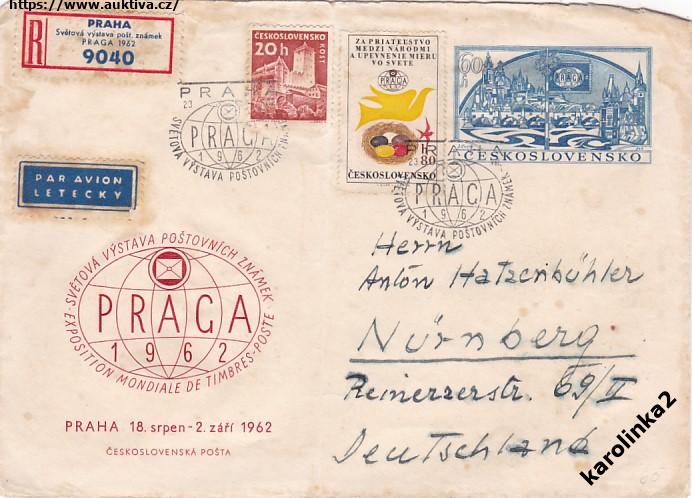 https://www.auktiva.cz/
R
PRAHA
Světová výstava pošt. známek
PRAGA 1962
9040
PAR AVION
LETECKY
ČESKOSLOVENSKO
20h
KOST
ZA PRIATEĽSTVO
MEDZI NÁRODMI
A UPEVNENIE MIERU
VO SVETE
PRAGA
1962
80
ČESKOSLOVENSKO
60
h
PRAGA
ČESKOSLOVENSKO
PRAHA
23
PRAGA
1962
SVĚTOVÁ VÝSTAVA POŠTOVNÍCH ZNÁMEK
PRAHA
23
PRAGA
1962
SVĚTOVÁ VÝSTAVA POŠTOVNÍCH ZNÁMEK
SVĚTOVÁ VÝSTAVA POŠTOVNÍCH ZNÁMEK
PRAGA
1962
EXPOSITION MONDIALE DE TIMBRES-POSTE
PRAHA 18. srpen - 2. září 1962
ČESKOSLOVENSKÁ POŠTA
Herrn
Anton Hatzenbühler
Nürnberg
Reinerzerstr. 69/II
Deutschland
karolinka2